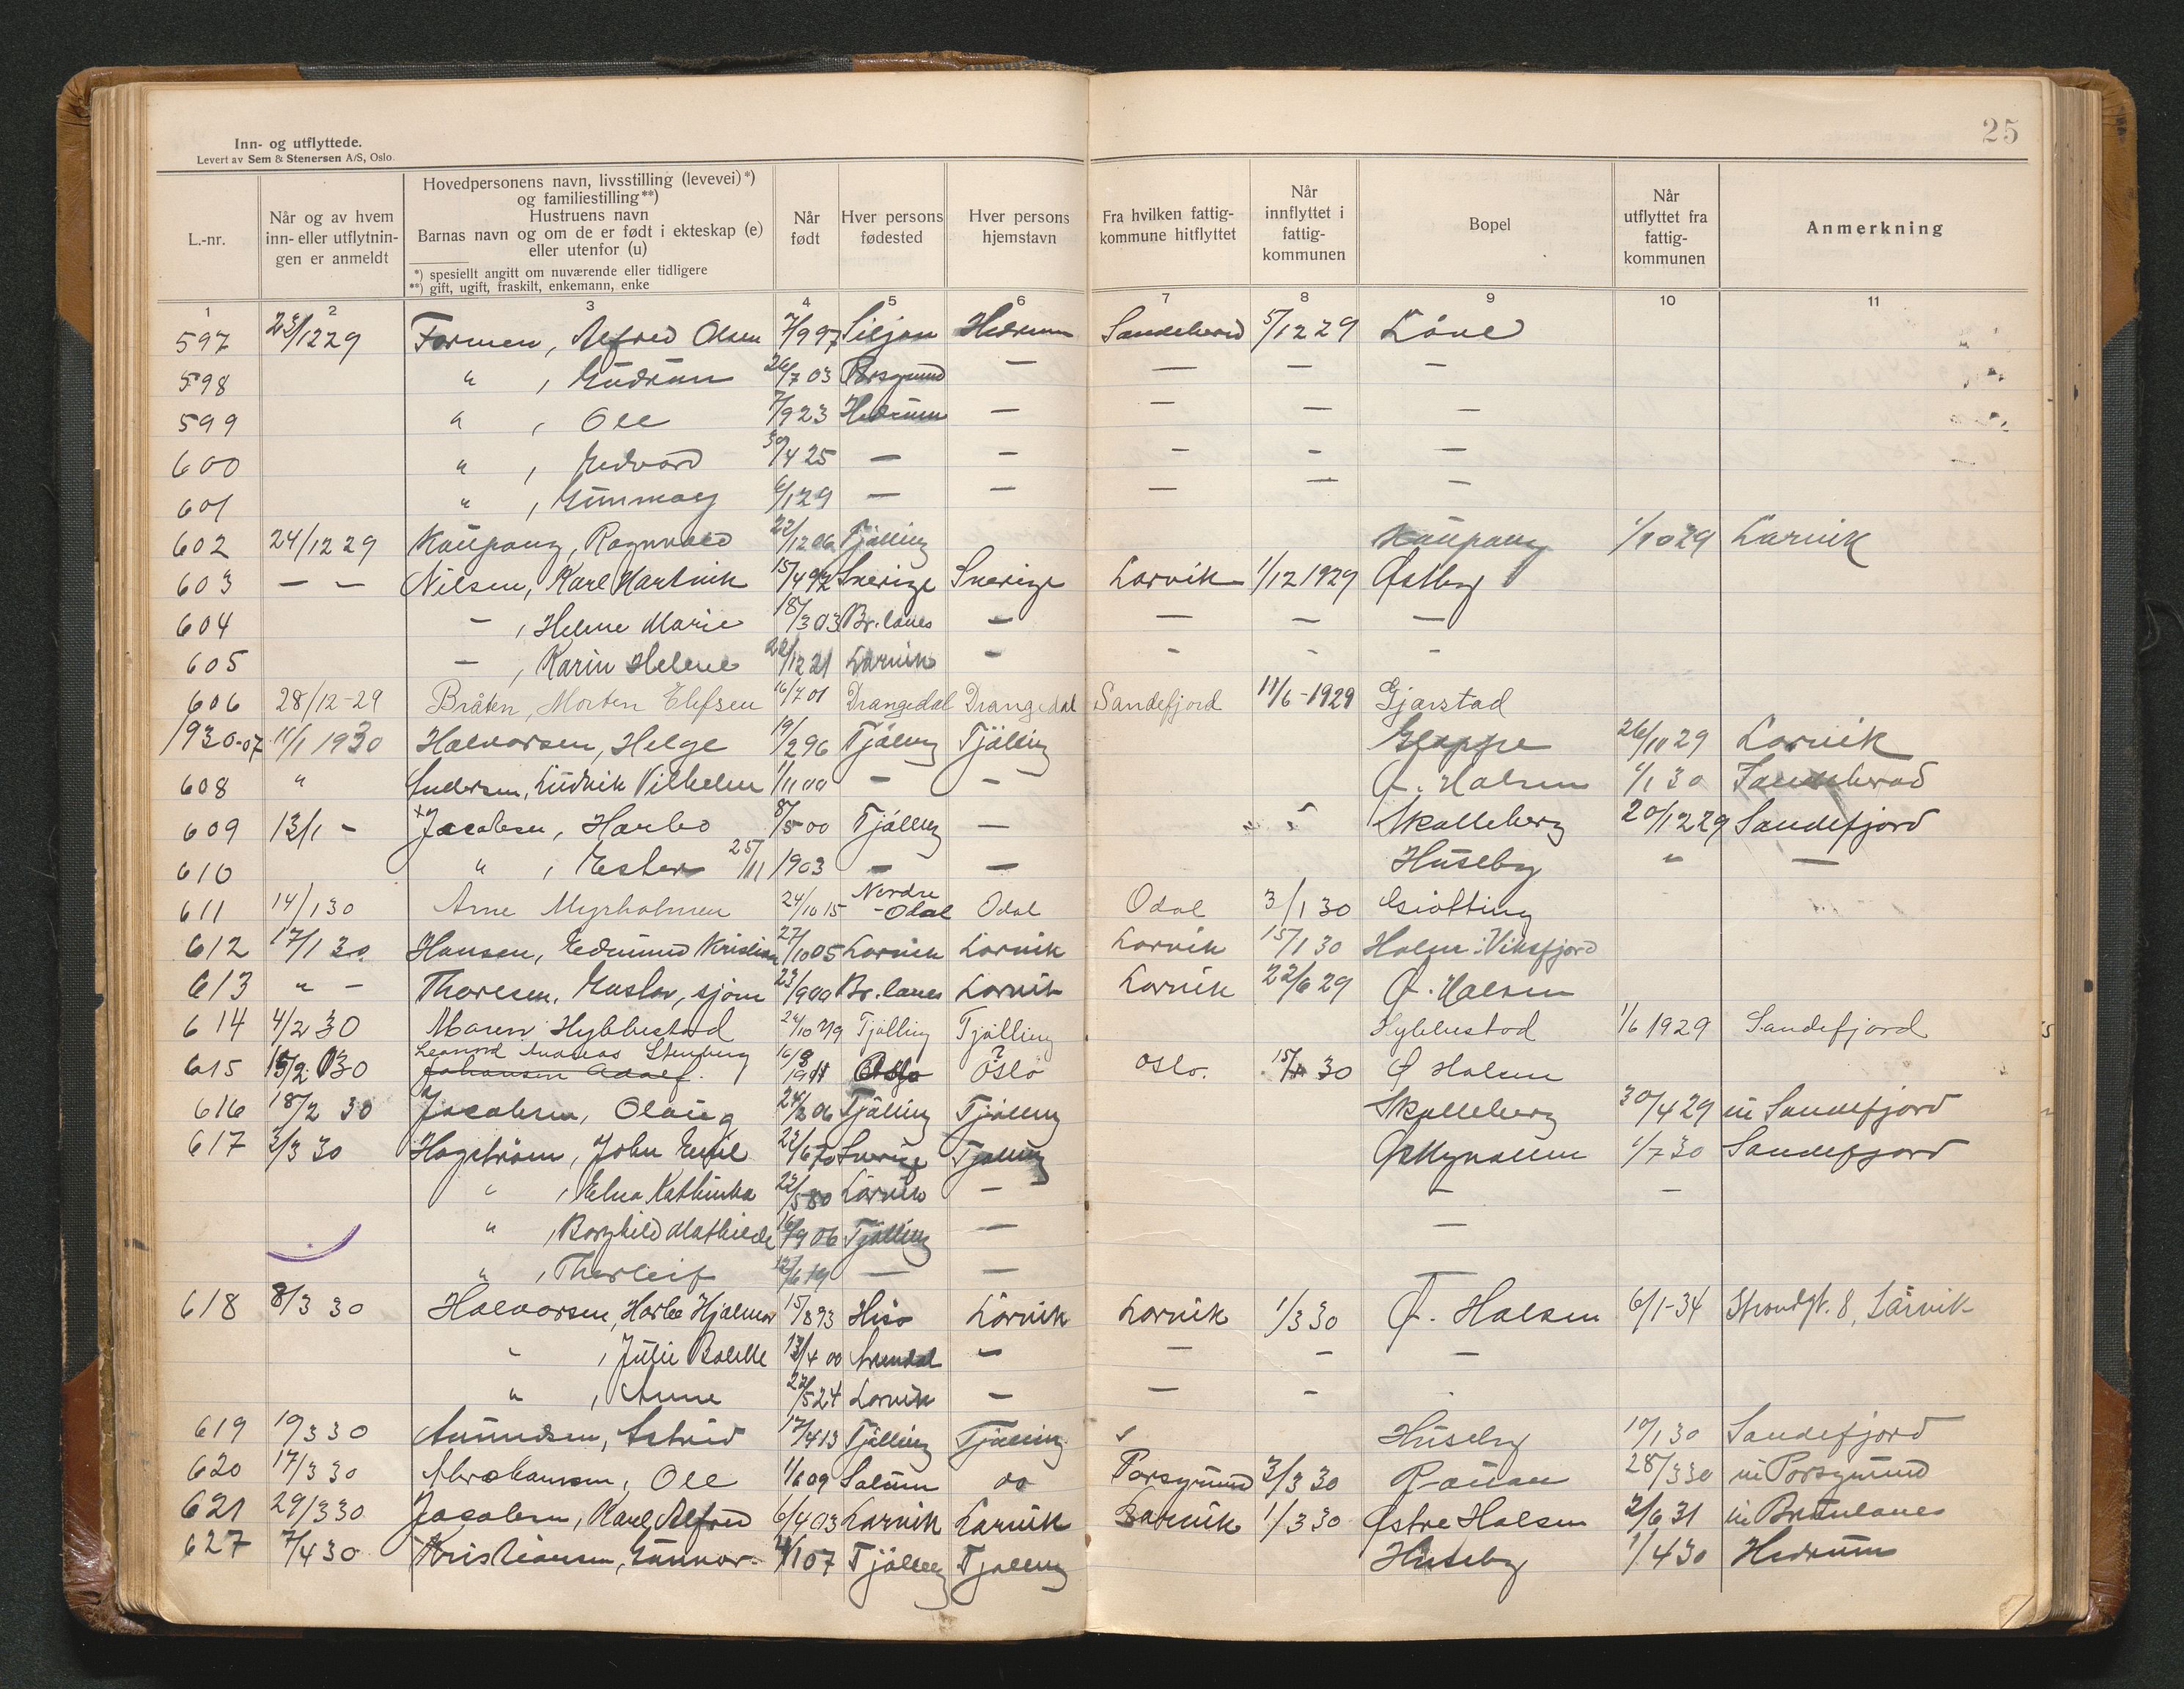 25
Inn- og utflyttede.
Levert av Sem & Stenersen A/S, Oslo.
L.-nr.
Når og av hvem inn- eller utflytnin-gen er anmeldt
Hovedpersonens navn, livsstilling (levevei)*)
og familiestilling**)
Hustruens navn
Barnas navn og om de er født i ekteskap (e)
eller utenfor (u)
*) spesiellt angitt om nuværende eller tidligere
**) gift, ugift, fraskilt, enkemann, enke
Når født
Hver persons fødested
Hver persons hjemstavn
Fra hvilken fattig-kommune hitflyttet
Når innflyttet i fattig-kommunen
Bopel
Når utflyttet fra fattig-kommunen
Anmerkning
1 2 3 4 5 6 7 8 9 10 11
597 23/12 29 Formen, Alfred Olsen 7/9 97 Siljan Hedrum Sandeherred 5/12 29 Løve
598 " , Gudrun 26/7 03 Porsgrund — — — —
599 " , Ole 7/9 23 Hedrum — — — —
600 " , Edvard 30/4 25 — — — — —
601 " , 6/1 29 — — — — —
602 24/12 29 Kaupang, Ragnvald 22/12 06 Tjølling Kaupang 1/10 29 Larvik
603 — — Nilsen, Karl Hartvik 15/4 92 Sverige Sverige Larvik 1/12 1929 Østby
604 — , Helene Marie 18/3 03 Br.lanes — — — —
605 — , Karin Helene 22/12 21 Larvik — - - -
606 28/12-29 Bråten, Morten Elefsen 16/7 01 Drangedal Drangedal Sandefjord 11/6-1929 Gjarstad
1930-07 11/1 1930 Halvorsen, Helge 19/2 96 Tjølling Tjølling Gloppe 26/10 29 Larvik
608 " Andersen, Ludvik Vilhelm 1/11 00 — — Ø. Halsen 1/1 30 Sandeherad
609 13/1 - Jacobsen, Harbo 8/5 00 Tjølling — Skalleberg 20/12 29 Sandefjord
610 " , Ester 25/11 1903 — — Huseby " —
611 14/1 30 Arne Myrholmen 24/10 15 Nordre -Odal Odal Odal 3/1 30
612 17/1 30 Hansen, Edmund Kristian 27/10 05 Larvik Larvik Larvik 15/1 30 Holm i Viksfjord
613 " - Thoresen, Gustav, sjøm 23/9 00 Br.lanes Larvik Larvik 22/6 29 Ø. Halsen
614 4/2 30 Maren Hybbestad 24/10 Tjølling Tjølling Hybbestad 1/6 1929 Sandefjord
615 15/2 30 Leonard Andreas Stenberg
Johansen Adolf. Oslo ? Oslo Oslo. 15/1 30 Ø Halsen
616 18/2 30 Jacobsen, Olaug 24/3 06 Tjølling Tjølling Skalleberg 30/4 29 in Sandefjord
617 3/3 30 Hagstrøm, John Emil 23/6 70 Sverige Tjølling 1/7 30 Sandefjord
" , Elna Kathinka 22/5 80 Larvik — — —
" , Borghild Mathilde 16/9 06 Tjølling — —
" , Thorleif — — —
618 8/3 30 Halvorsen, Harbo Hjalmar 15/8 93 Hisø Larvik Larvik 1/3 30 Ø. Halsen 6/1-34 Strandgt. 8, Larvik
" , Julie Bolette 13/4 00 Arendal — — — —
" , Anne 22/5 24 Larvik — — -
619 19/3 30 Amundsen, Astrid 17/4 13 Tjølling Tjølling Huseby 10/1 30 Sandefjord
620 17/3 30 Abrahamsen, Ole 1/6 09 Solum do Porsgrund 3/3 30 Rauan 28/3 30 in Porsgrund
621 29/3 30 Jacobsen, Karl Alfred 6/4 03 Larvik Larvik Larvik 1/3 30 Østre Halsen 2/6 31 in Brunlanes
627 7/4 30 Kristiansen, Gunvor. 4/1 07 Tjølling Tjølling Huseby 1/4 30 Hedrum